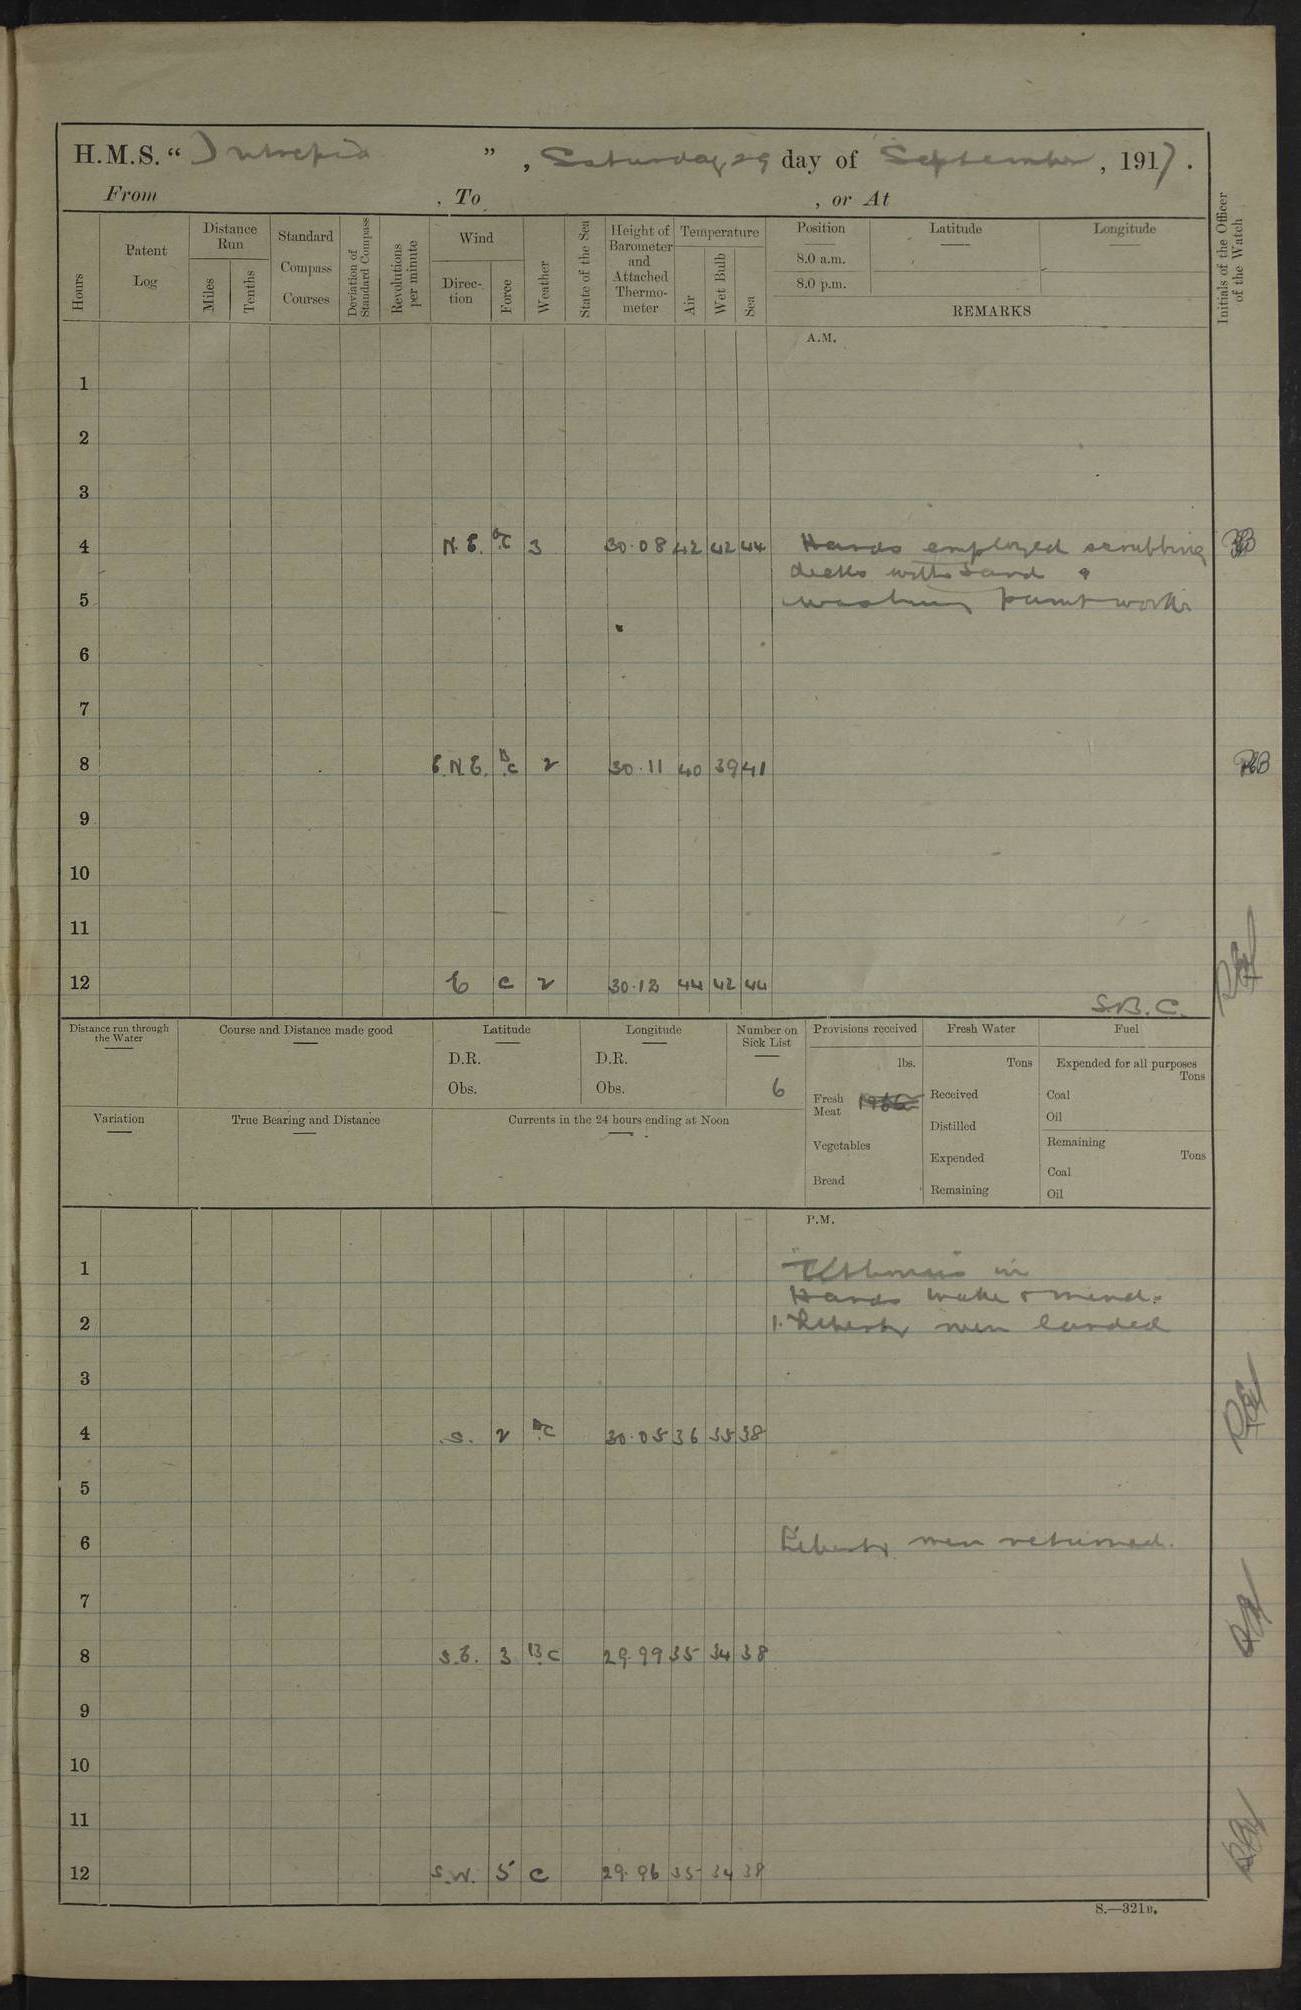 H.M.S. “ Intrepid ” , Saturday 29 day of September , 1917 .
From , To , or At
Hours
Patent Log
Distance Run
Miles
Tenths
Standard Compass Courses
Deviation of Standard Compass
Revolutions per minute
Wind
Direc- tion
Force
Weather
State of the Sea
Height of Barometer and Attached Thermo- meter
Temperature
Air
Wet Bulb
Sea
Position
8.0 a.m.
8.0 p.m.
Latitude
Longitude
REMARKS
Initials of the Officer of the Watch
A.M.
1
2
3
4 N.E. B.C 3 30.08 42 42 44 Hands employed scrubbing
decks with sand &
5 washing paintwork
6
7
8 E.N.E. B.C 2 30.11 40 39 41
9
10
11
12 E C 2 30.13 44 42 44
S.B.C.
Distance run through the Water
Course and Distance made good
Latitude
D.R.
Obs.
Longitude
D.R.
Obs.
Number on Sick List
6
Provisions received
lbs.
Fresh Meat
Vegetables
Bread
Fresh Water
Tons
Received
Distilled
Expended
Remaining
Fuel
Expended for all purposes
Tons
Coal
Oil
Remaining
Tons
Coal
Oil
Variation
True Bearing and Distance
Currents in the 24 hours ending at Noon
P.M.
1 in
Hands make & mend.
2 1. Liberty men landed
3
4 S. 2 B.C 30.05 36 35 38
5
6 Liberty men returned.
7
8 S.E. 3 B.C 29.99 35 34 38
9
10
11
12 S.W. 5 C 29.96 35 34 38
S.—321B.